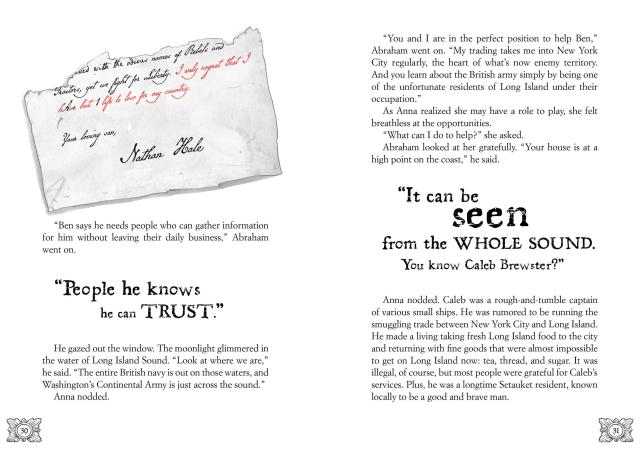 with the odious names of Rebels and
Traitors, yet we fight for Liberty. I only regret that I
have but 1 life to lose for my country.
Your loving son,
Nathan Hale
“Ben says he needs people who can gather information
for him without leaving their daily business,” Abraham
went on.
“People he knows
he can TRUST.”
He gazed out the window. The moonlight glimmered
in the water of Long Island Sound. “Look at where we are,”
he said. “The entire British navy is out on those waters, and
Washington’s Continental Army is just across the sound.”
Anna nodded.
30
“You and I are in the perfect position to help Ben,”
Abraham went on. “My trading takes me into New York
City regularly, the heart of what’s now enemy territory.
And you learn about the British army simply by being one
of the unfortunate residents of Long Island under their
occupation.”
As Anna realized she may have a role to play, she felt
breathless at the opportunities.
“What can I do to help?” she asked.
Abraham looked at her gratefully. “Your house is at a
high point on the coast,” he said.
“It can be
seen
from the WHOLE SOUND.
You know Caleb Brewster?”
Anna nodded. Caleb was a rough-and-tumble captain
of various small ships. He was rumored to be running the
smuggling trade between New York City and Long Island.
He made a living taking fresh Long Island food to the city
and returning with fine goods that were almost impossible
to get on Long Island now: tea, thread, and sugar. It was
illegal, of course, but most people were grateful for Caleb’s
services. Plus, he was a longtime Setauket resident, known
locally to be a good and brave man.
31